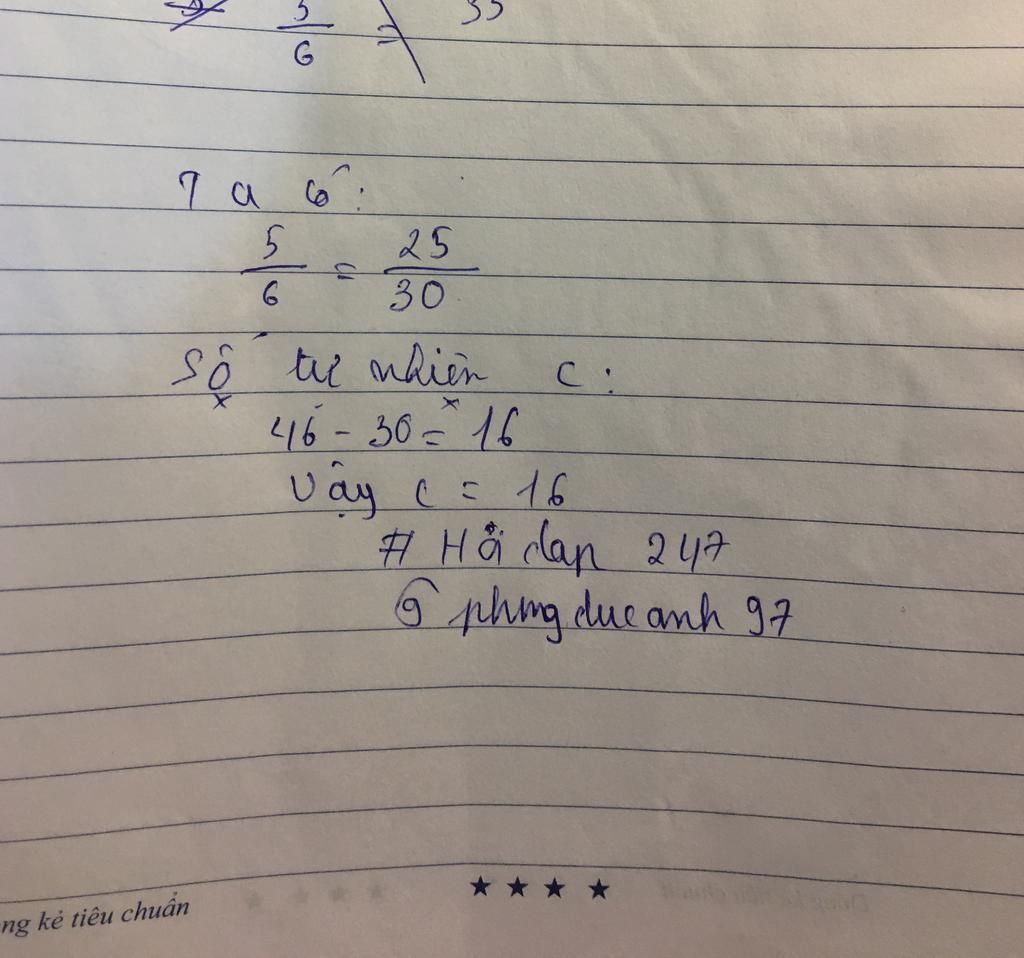 5/6 =
Ta có:
5/6 = 25/30
Số tự nhiên c:
46 - 30 = 16
Vậy c = 16
# Hỏi dap 247
phungducanh 97
ng kẻ tiêu chuẩn ★ ★ ★ ★